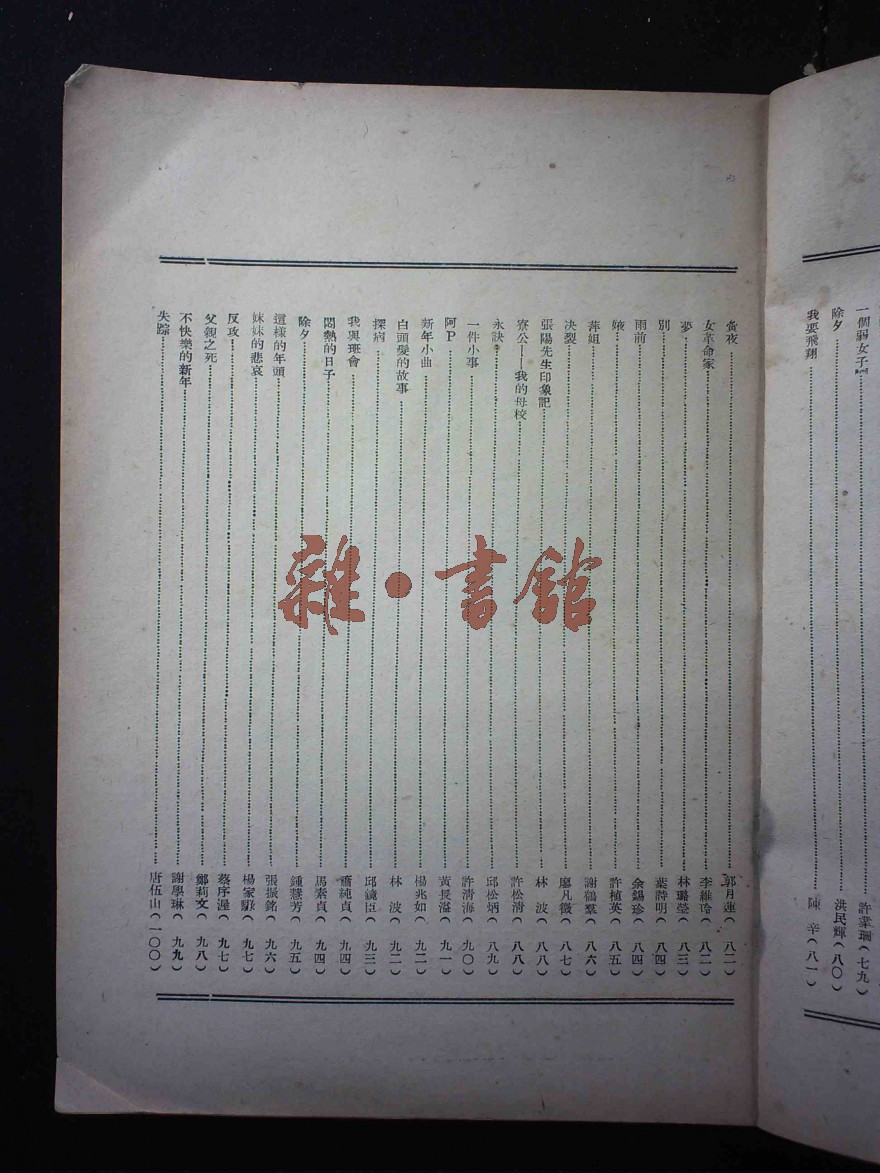 一個弱女子……許業瑞(七九)
除夕……洪民輝(八〇)
我要飛翔……陳 辛(八一)
黃夜……郭月蓮(八二)
女革命家……李維(八二)
夢……林璐瑩(八三)
別……葉詩明(八四)
雨前……余錫珍(八四)
娥……許植英(八五)
萍姐……謝鶴羣(八六)
决裂……廖凡微(八七)
張陽先生印象記……林 波(八八)
寮公——我的母校……許松清(八八)
永訣……邱松炳(八九)
一件小事……許清海(九〇)
阿P……黃長溢(九一)
新年小曲……楊兆如(九二)
白頭髮的故事……林 波(九二)
探病……邱鏡臣(九三)
我與班會……蕭純貞(九四)
悶熱的日子……馬素貞(九四)
除夕……鍾慧芳(九五)
這樣的年頭……張振銘(九六)
妹妹的悲哀……楊家(九七)
反攻……蔡序渥(九七)
父親之死……鄭莉文(九八)
不快樂的新年……謝學琳(九九)
失踪……唐伍山(一〇〇)
雜·書館